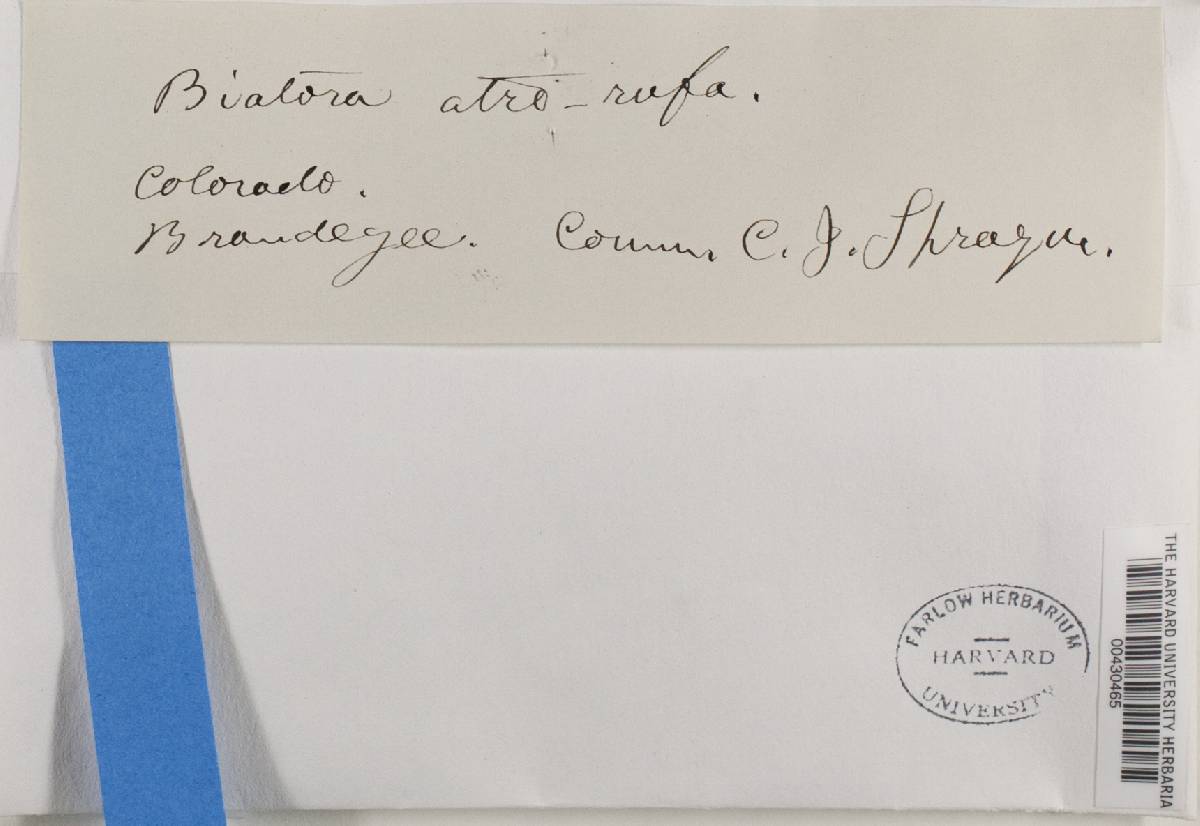 Biatora atro-rufa.
Colorado.
Brandegee. Comm. C. J. Sprague.
FARLOW HERBARIUM
HARVARD
UNIVERSITY
THE HARVARD UNIVERSITY HERBARIA
00430465